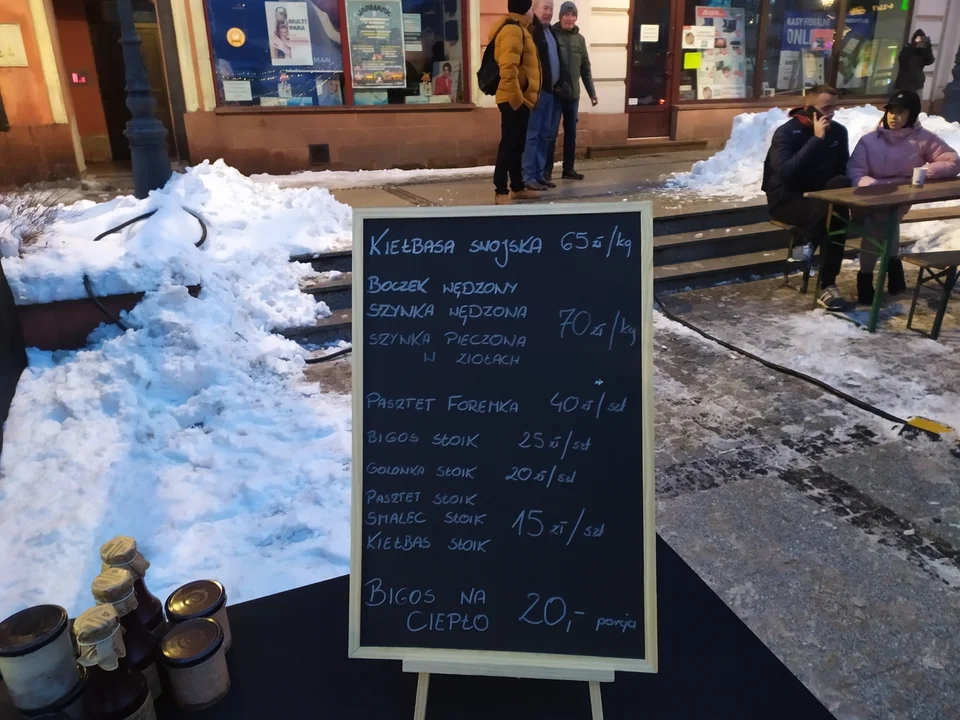 MULTI
PARA
JARMARK
KASY FISKALNE
ONLINE
KIEŁBASA SWOJSKA 65 zł/kg
BOCZEK WĘDZONY
SZYNKA WĘDZONA 70 zł/kg
SZYNKA PIECZONA
W ZIOŁACH
PASZTET FOREMKA 40 zł/szt
BIGOS SŁOIK 25 zł/szt
GOLONKA SŁOIK 20 zł/szt
PASZTET SŁOIK
SMALEC SŁOIK 15 zł/szt
KIEŁBAS SŁOIK
BIGOS NA
CIEPŁO 20,- porcja